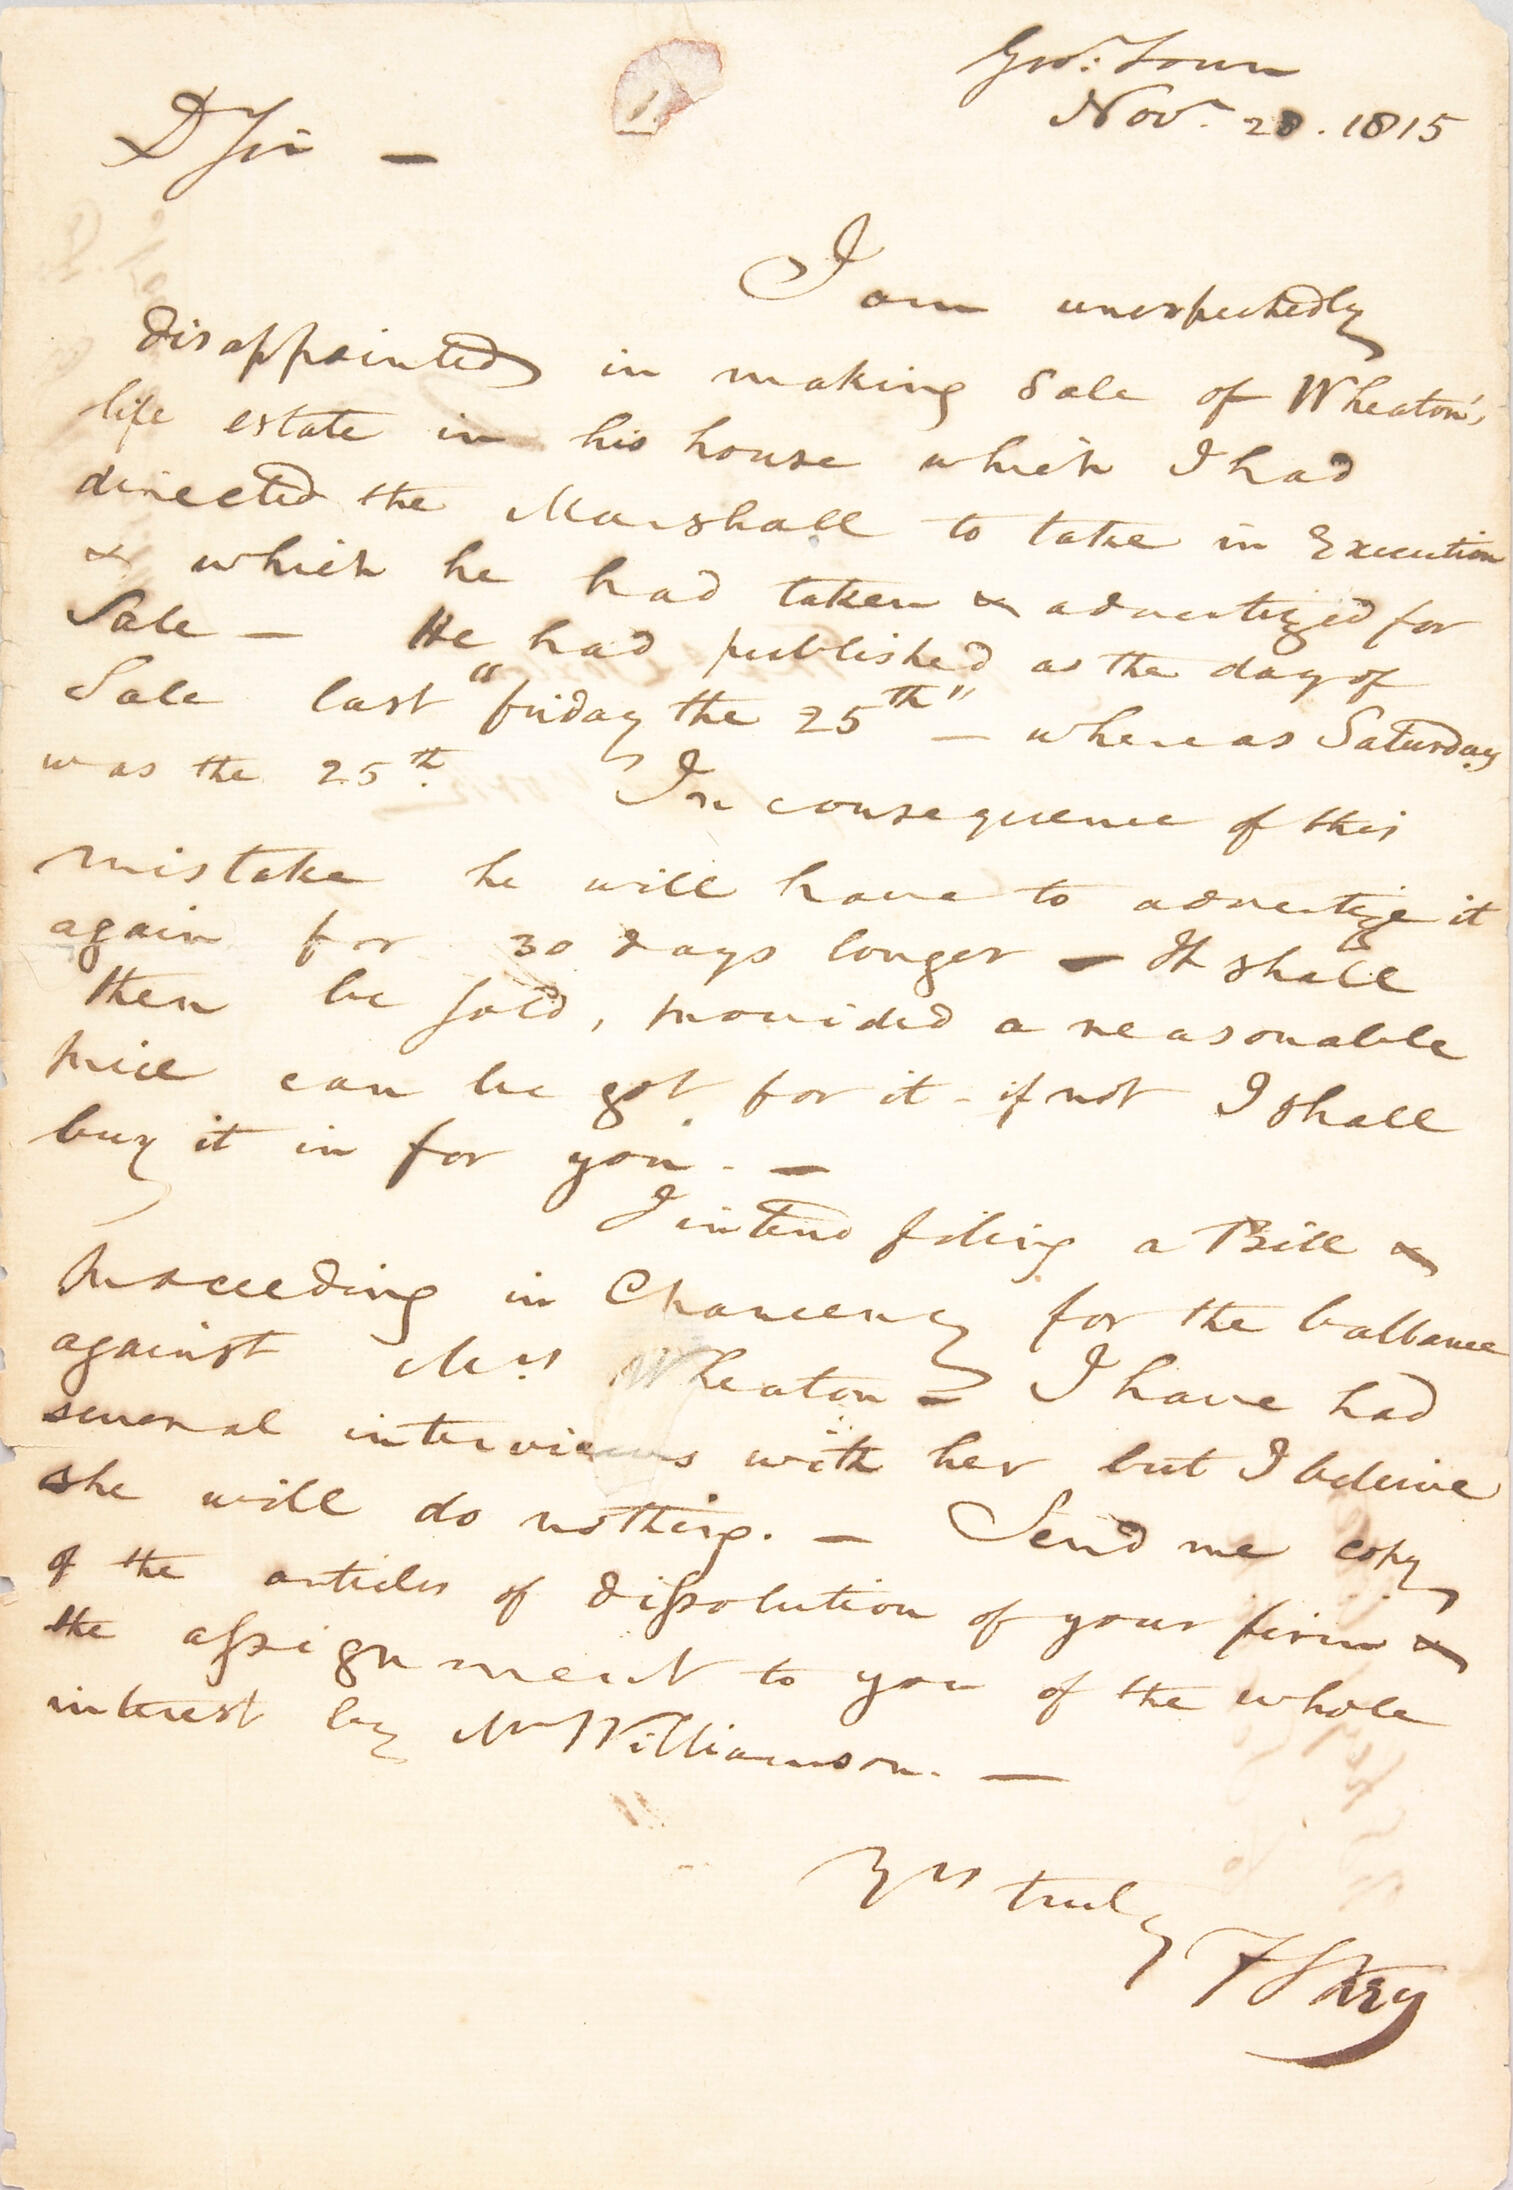 Geo: Town
Nov.r 28. 1815
D Sir —
I am unexpectedly
disappointed in making Sale of Wheaton's
life estate in his house which I had
directed the Marshall to take in Execution
& which he had taken & advertized for
Sale — He had published as the day of
Sale last "friday the 25th" — whereas Saturday
was the 25th. In consequence of this
mistake he will have to advertize it
again for 30 days longer — It shall
then be sold, provided a reasonable
price can be got for it - if not I shall
buy it in for you. —
I intend filing a Bill &
proceeding in Chancery for the ballance
against Mrs Wheaton — I have had
several interviews with her but I beleive
she will do nothing. — Send me copy
of the articles of dissolution of your firm &
the assignment to you of the whole
interest by Mr Williamson. —
Yrs truly
F S Key